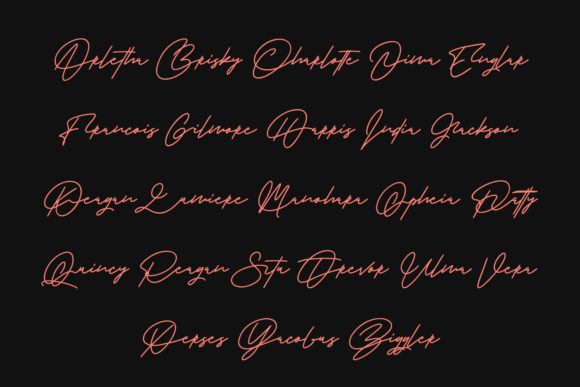 Arletha Brisky Charlotte Dima Englar
Francois Gilmore Harris India Jackson
Keagan Lumiere Manohara Opheia Patty
Quincy Reagan Situ Trevor Ulma Vera
Xerses Yacobus Ziggler